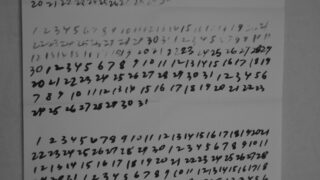 20 21 22 23 24 25 26
1 2 3 4 5 6 7 8 9 10 11 12 13 14 15 16 17 18 19 20 21
22 23 24 25 26 27 28 29 30 31 1 2 3 4 5 6 7 8 9 10 11
12 13 14 15 16 17 18 19 20 21 22 23 24 25 26 27 28 29
30 1 2 3 4 5 6 7 8 9 10 11 12 13 14 15 16 17 18 19
20 21 22 23 24 25 26 27 28 29 30 31 1 2 3 4 5 6
7 8 9 10 11 12 13 14 15 16 17 18 19 20 21 22 23
24 25 26 27 28 29 30 31
1 2 3 4 5 6 7 8 9 10 11 12 13 14 15 16 17 18 19 20 21
22 23 24 25 26 27 28 29 30 31 1 2 3 4 5 6 7 8 9 10 11
12 13 14 15 16 17 18 19 20 21 22 23 24 25 26 27 28
1 2 3 4 5 6 7 8 9 10 11 12 13 14 15 16 17 18